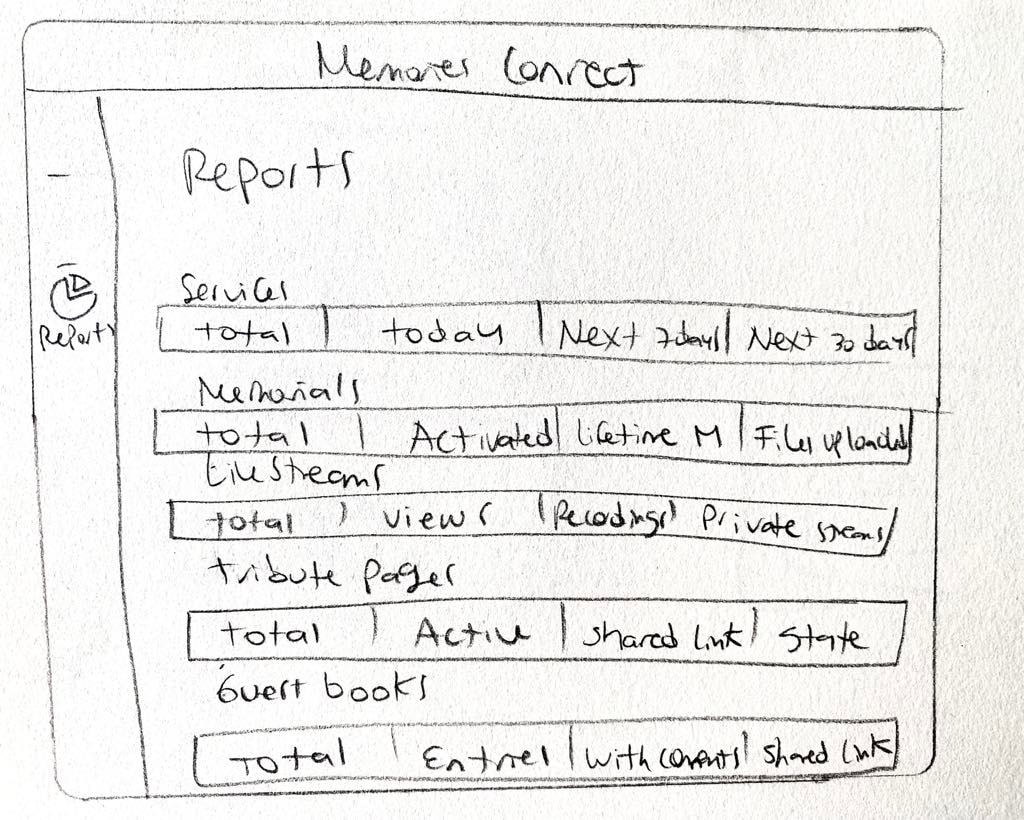 Memories Connect
Reports
Reports
Services
total | today | Next 7 days | Next 30 days
Memorials
total | Activated | Lifetime M | Files uploaded
Livestreams
total | views | Recodings | Private streams
tribute pages
total | Active | shared link | State
Guest books
Total | Entries | with coments | shared link